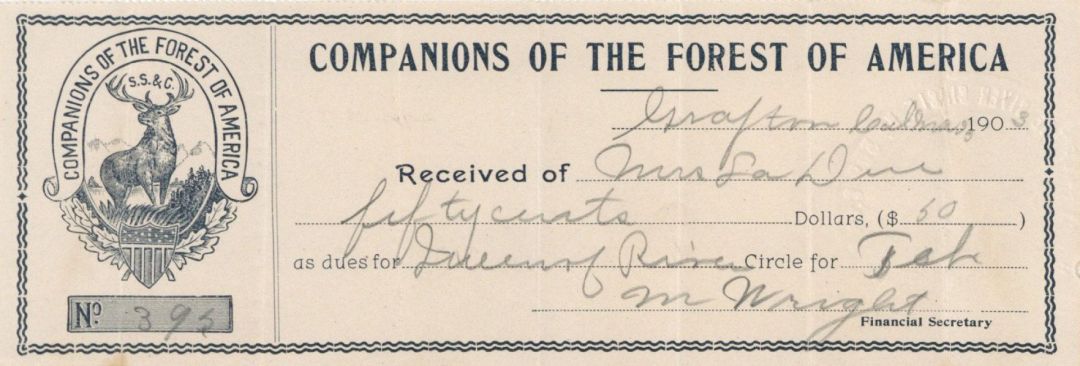 COMPANIONS OF THE FOREST OF AMERICA
S.S.&C.
No. 395
COMPANIONS OF THE FOREST OF AMERICA
Grafton Cal Mar 3 1903
Received of Mrs La Due
fifty cents Dollars, ($ 50 )
as dues for Queen of River Circle for Feb
M Wright
Financial Secretary